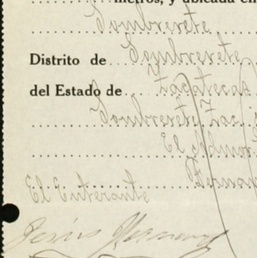 metros, y ubicada en
Sombrerete
Distrito de Sombrerete
del Estado de Zacatecas
Sombrerete, Zac.
El
El Enterante
Jesús